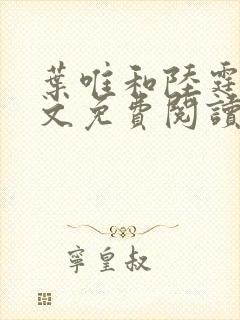 葉唯和陸霆
文免費閱讀
寧皇叔